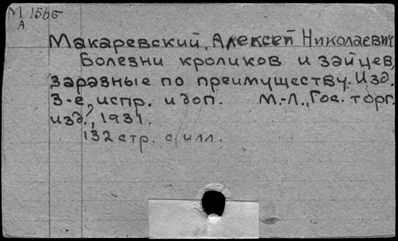 М 156б
А
Макаревский, Алексей Николаевич
Болезни кроликов и зайцев,
заразные по преимуществу. Изд.
3-е, испр. и доп. М.-Л., Гос. торг.
изд., 1931.
132 стр. с илл.